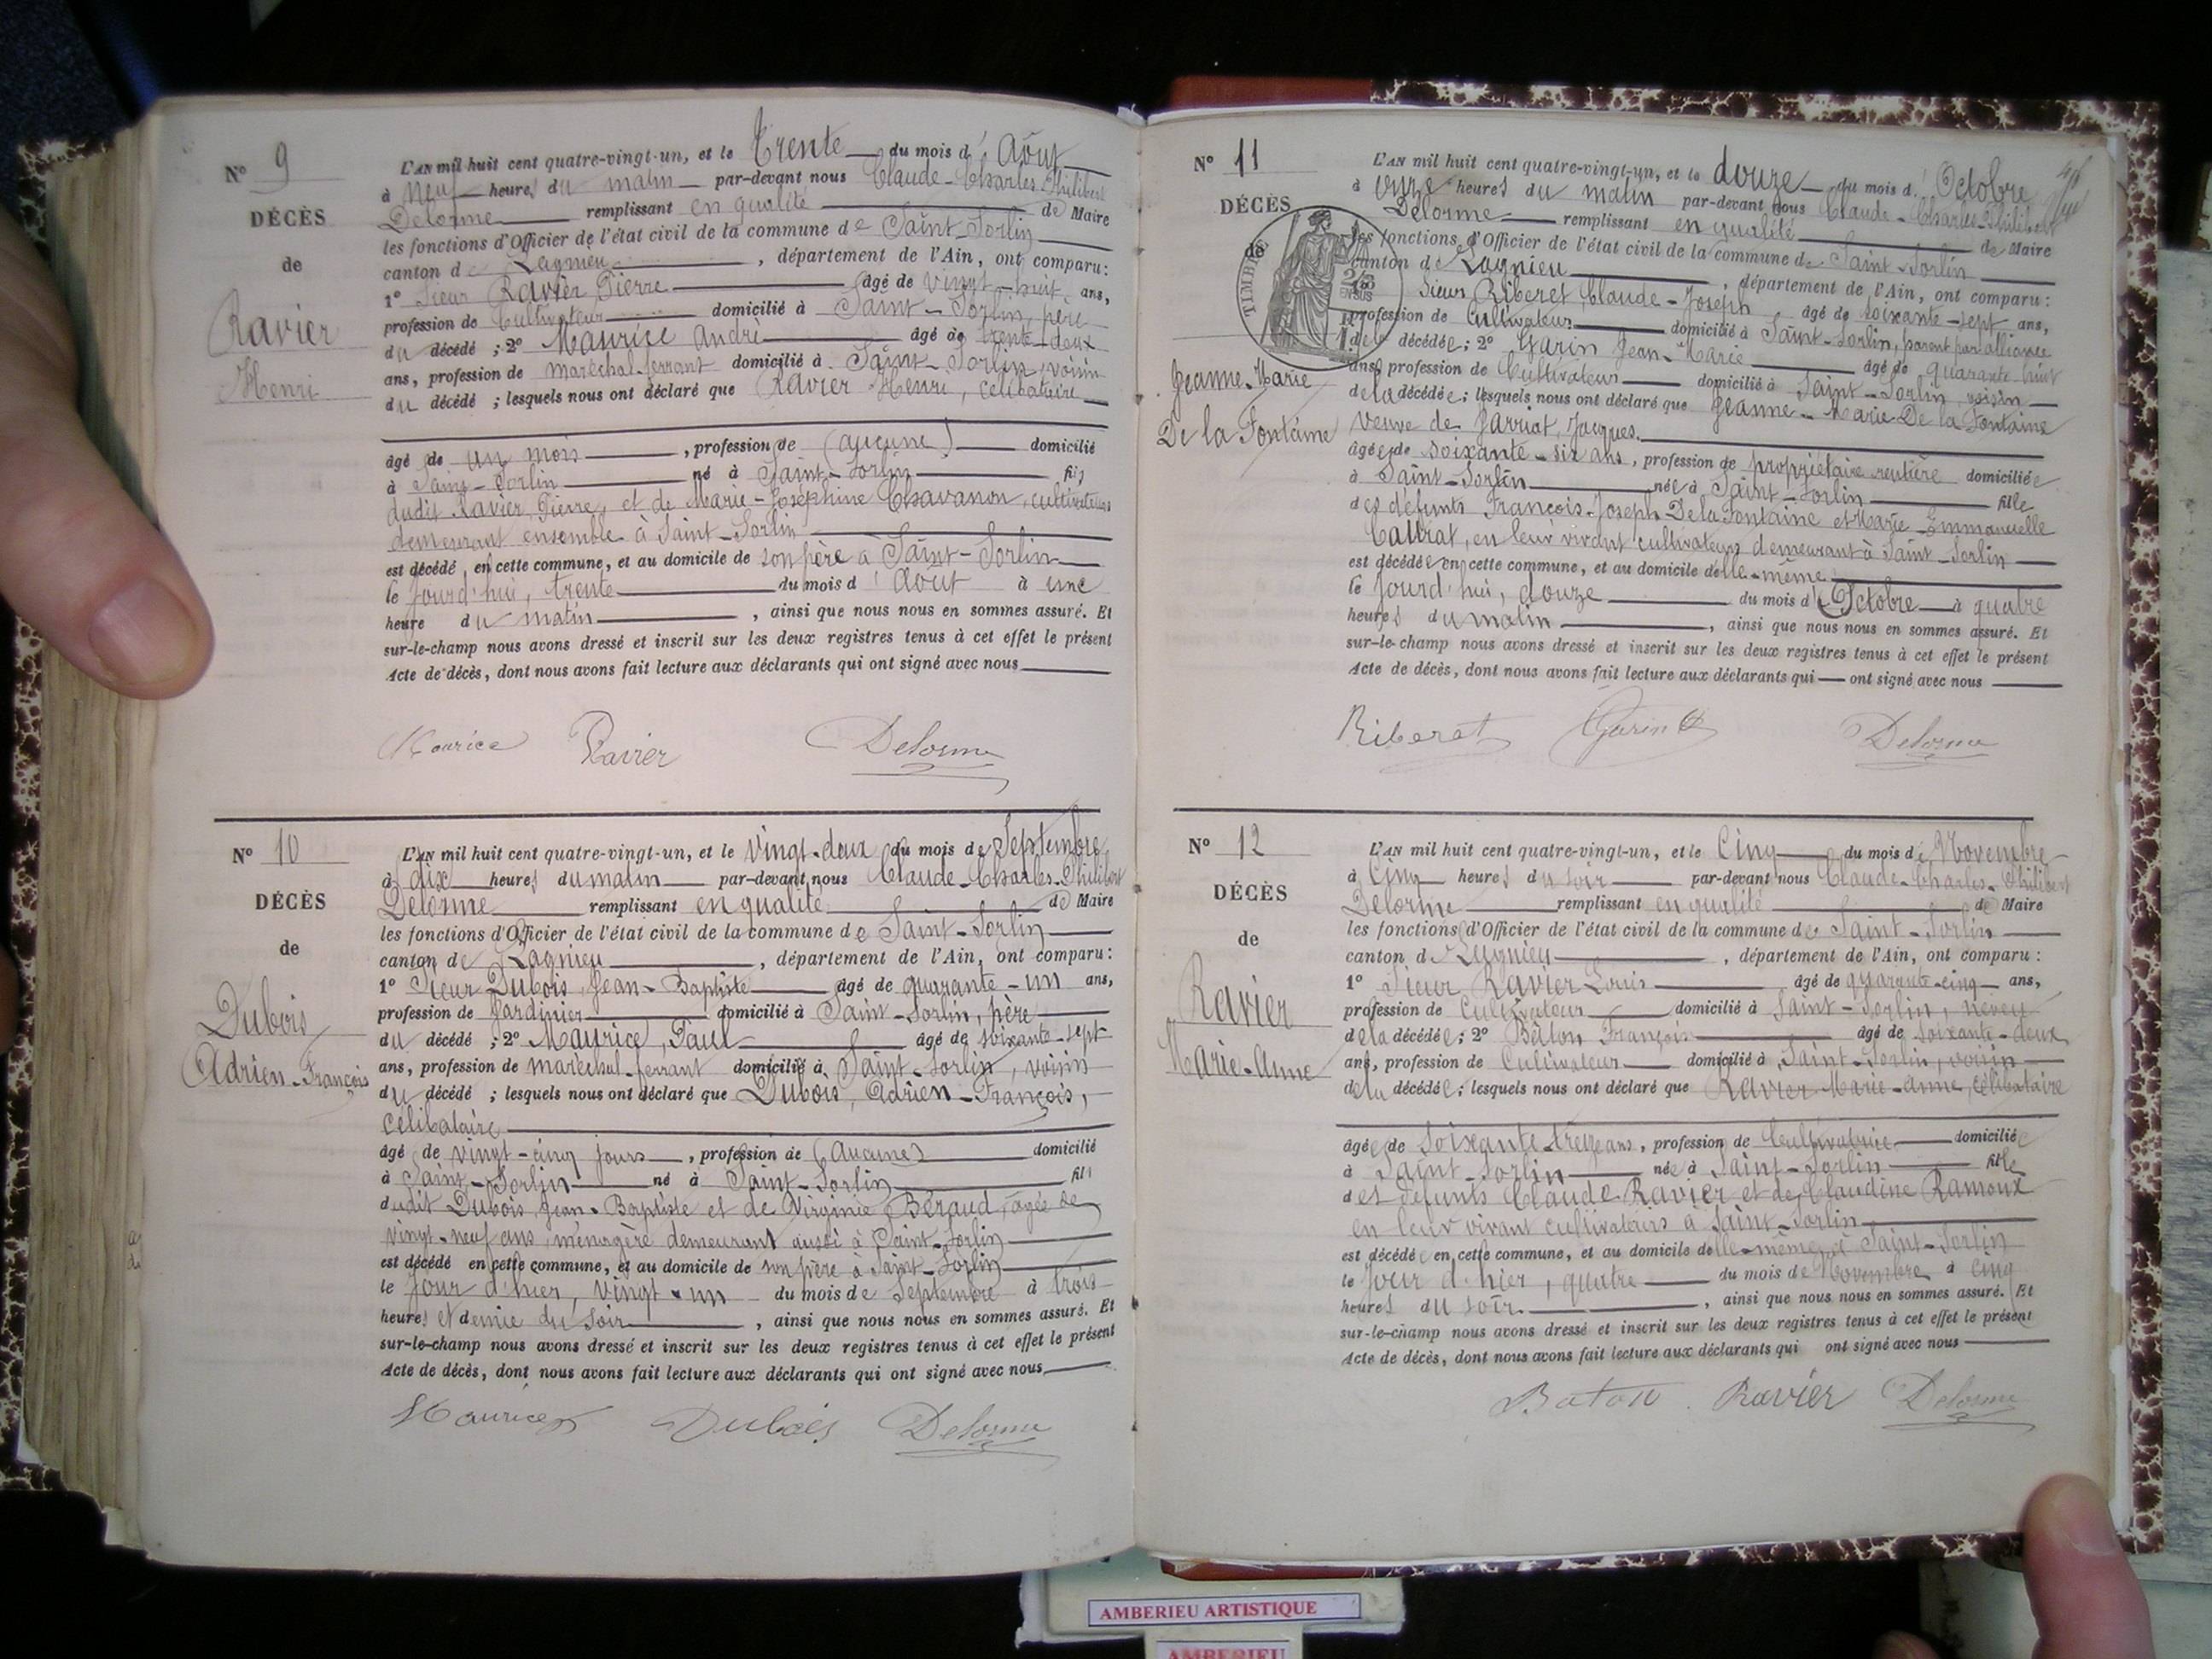 N° 9
DÉCÈS
de
Ravier
Henri
L'AN mil huit cent quatre-vingt-un, et le Trente du mois d'Août
à neuf heures du matin par-devant nous Claude-Charles-Philibert
Delorme remplissant en qualité de Maire
les fonctions d'Officier de l'état civil de la commune de Saint-Sorlin
canton de Lagnieu, département de l'Ain, ont comparu:
1° Sieur Ravier Pierre âgé de vingt-huit ans,
profession de Cultivateur domicilié à Saint-Sorlin, père
du décédé ; 2° Maurice André âgé de trente-deux
ans, profession de maréchal-ferrant domicilié à Saint-Sorlin, voisin
du décédé ; lesquels nous ont déclaré que Ravier Henri, célibataire
âgé de un mois, profession de (aucune) domicilié
à Saint-Sorlin né à Saint-Sorlin fils
dudit Ravier, Pierre, et de Marie-Joséphine Chavanon, cultivateurs
demeurant ensemble à Saint-Sorlin
est décédé en cette commune, et au domicile de son père à Saint-Sorlin
le jourd'hui, trente du mois d'Août à une
heure du matin, ainsi que nous nous en sommes assuré. Et
sur-le-champ nous avons dressé et inscrit sur les deux registres tenus à cet effet le présent
Acte de décès, dont nous avons fait lecture aux déclarants qui ont signé avec nous
Maurice Ravier Delorme
N° 10
DÉCÈS
de
Dubois
Adrien-François
L'AN mil huit cent quatre-vingt-un, et le vingt-deux du mois de Septembre
à dix heures du matin par-devant nous Claude-Charles-Philibert
Delorme remplissant en qualité de Maire
les fonctions d'Officier de l'état civil de la commune de Saint-Sorlin
canton de Lagnieu, département de l'Ain, ont comparu:
1° Sieur Dubois, Jean-Baptiste âgé de quarante-un ans,
profession de Jardinier domicilié à Saint-Sorlin, père
du décédé ; 2° Maurice, Paul âgé de soixante-sept
ans, profession de maréchal-ferrant domicilié à Saint-Sorlin, voisin
du décédé ; lesquels nous ont déclaré que Dubois, Adrien-François,
célibataire
âgé de vingt-cinq jours, profession de (Aucune) domicilié
à Saint-Sorlin né à Saint-Sorlin fils
dudit Dubois, Jean-Baptiste et de Virginie Béraud, âgée de
vingt-neuf ans, ménagère demeurant aussi à Saint-Sorlin
est décédé en cette commune, et au domicile de son père à Saint-Sorlin
le jour d'hier, vingt-un du mois de Septembre à trois
heures et demie du soir, ainsi que nous nous en sommes assuré. Et
sur-le-champ nous avons dressé et inscrit sur les deux registres tenus à cet effet le présent
Acte de décès, dont nous avons fait lecture aux déclarants qui ont signé avec nous
Maurice Dubois Delorme
N° 11
DÉCÈS
de
TIMBRE
Jeanne-Marie
De la Fontaine
L'AN mil huit cent quatre-vingt-un, et le douze du mois d'Octobre
à onze heures du matin par-devant nous Claude-Charles-Philibert
Delorme remplissant en qualité de Maire
les fonctions d'Officier de l'état civil de la commune de Saint-Sorlin
canton de Lagnieu, département de l'Ain, ont comparu:
Sieur Riberet Claude-Joseph âgé de soixante-sept ans,
profession de Cultivateur domicilié à Saint-Sorlin, parent par alliance
de la décédée ; 2° Garin Jean-Marie âgé de quarante-huit
ans, profession de Cultivateur domicilié à Saint-Sorlin, voisin
de la décédée ; lesquels nous ont déclaré que Jeanne-Marie De la Fontaine
veuve de Jarriat, Jacques.
âgée de soixante-six ans, profession de propriétaire rentière domiciliée
à Saint-Sorlin née à Saint-Sorlin fille
des défunts François-Joseph De la Fontaine et Marie-Emmanuelle
en leur vivant cultivateurs demeurant à Saint-Sorlin
est décédée en cette commune, et au domicile d'elle-même
le jourd'hui, douze du mois d'Octobre à quatre
heures du matin, ainsi que nous nous en sommes assuré. Et
sur-le-champ nous avons dressé et inscrit sur les deux registres tenus à cet effet le présent
Acte de décès, dont nous avons fait lecture aux déclarants qui ont signé avec nous
Riberet Garin Delorme
N° 12
DÉCÈS
de
Ravier
Marie-Anne
L'AN mil huit cent quatre-vingt-un, et le Cinq du mois de Novembre
à Cinq heures du soir par-devant nous Claude-Charles-Philibert
Delorme remplissant en qualité de Maire
les fonctions d'Officier de l'état civil de la commune de Saint-Sorlin
canton de Lagnieu, département de l'Ain, ont comparu:
1° Sieur Ravier Louis âgé de quarante-cinq ans,
profession de Cultivateur domicilié à Saint-Sorlin, neveu
de la décédée ; 2° François âgé de soixante-deux
ans, profession de Cultivateur domicilié à Saint-Sorlin, voisin
de la décédée ; lesquels nous ont déclaré que Ravier Marie-Anne, célibataire
âgée de Soixante-treize ans, profession de Cultivatrice domiciliée
à Saint-Sorlin née à Saint-Sorlin fille
des défunts Claude Ravier et de Claudine Ramoux
en leur vivant cultivateurs à Saint-Sorlin
est décédée en cette commune, et au domicile d'elle-même à Saint-Sorlin
le jour d'hier, quatre du mois de Novembre à cinq
heures du soir, ainsi que nous nous en sommes assuré. Et
sur-le-champ nous avons dressé et inscrit sur les deux registres tenus à cet effet le présent
Acte de décès, dont nous avons fait lecture aux déclarants qui ont signé avec nous
Ravier Delorme
AMBERIEU ARTISTIQUE
AMBERIEU